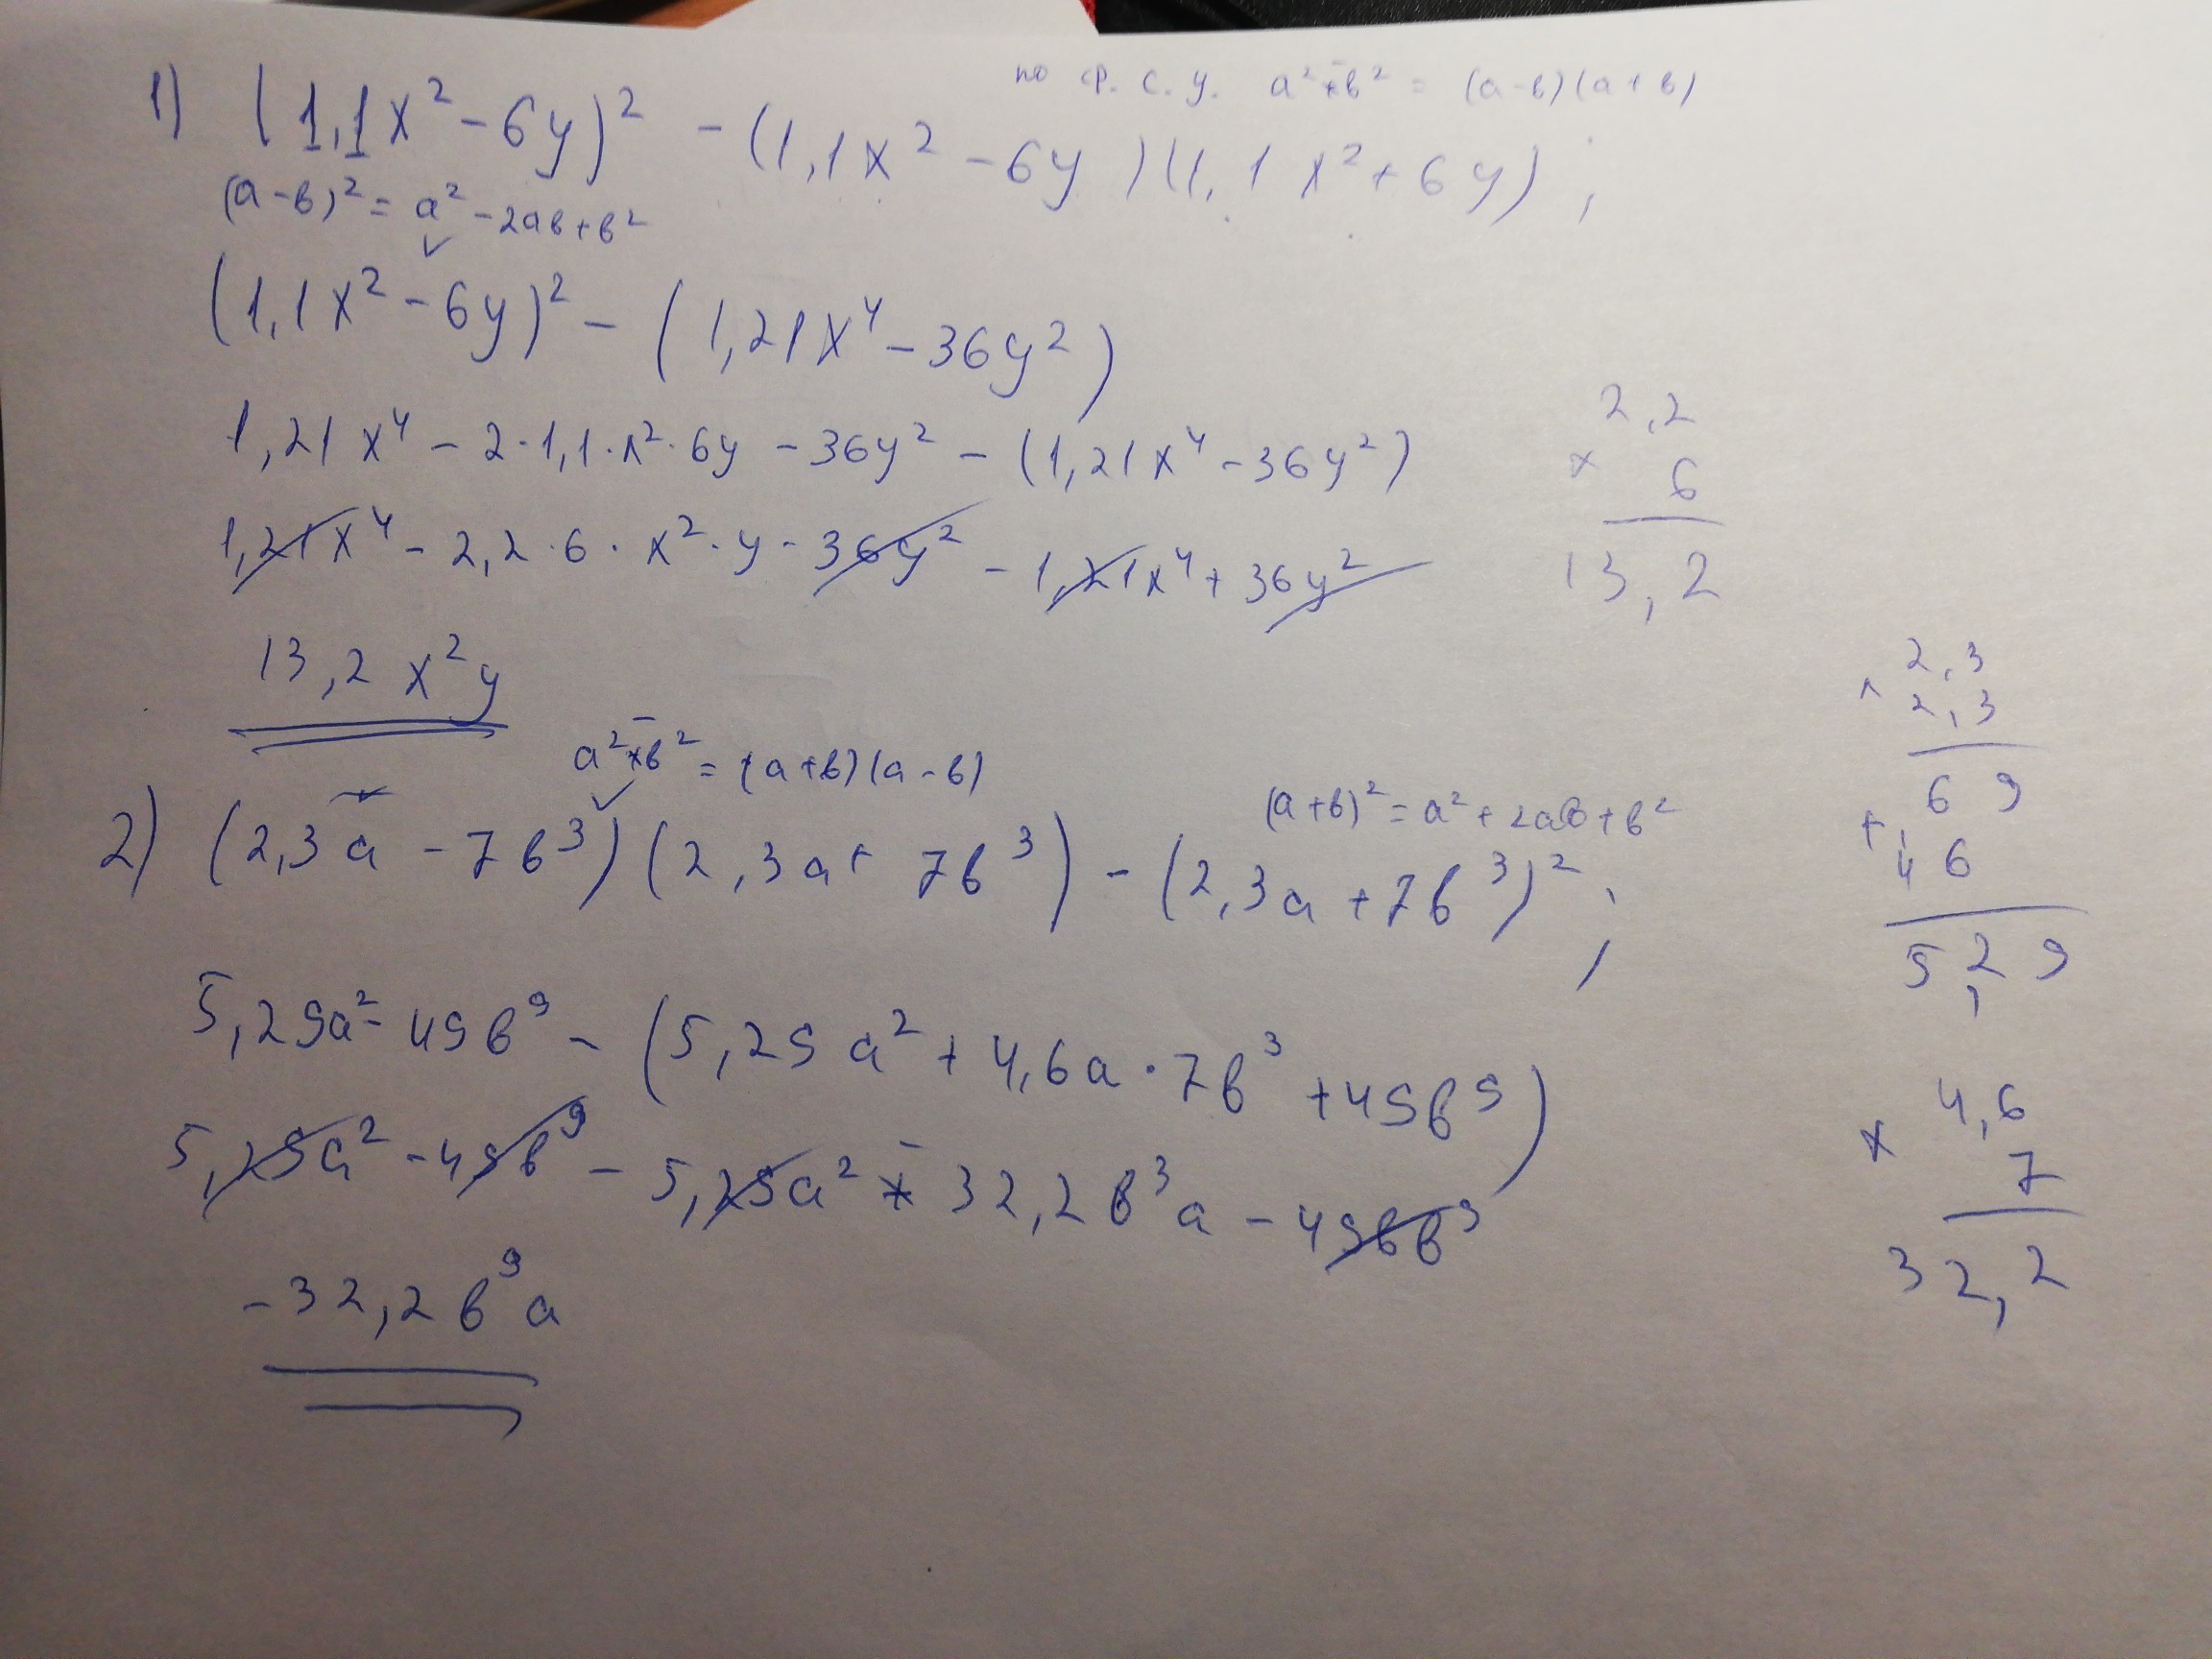 по ср. с. у. a² - b² = (a-b)(a+b)
1) (1,1x² - 6y)² - (1,1x² - 6y)(1,1x² + 6y);
(a-b)² = a² - 2ab + b²
(1,1x² - 6y)² - (1,21x⁴ - 36y²)
1,21x⁴ - 2·1,1·x²·6y - 36y² - (1,21x⁴ - 36y²)
1,21x⁴ - 2,2·6·x²·y - 36y² - 1,21x⁴ + 36y²
13,2x²y
2,2
× 6
13,2
a² - b² = (a+b)(a-b)
(a+b)² = a² + 2ab + b²
2) (2,3a - 7b³)(2,3a + 7b³) - (2,3a + 7b³)²;
5,29a² - 49b⁹ - (5,29a² + 4,6a·7b³ + 49b⁹)
5,29a² - 49b⁹ - 5,29a² - 32,2b³a - 49b⁹
-32,2b⁹a
2,3
× 2,3
6 9
+ 4 6
5,2 9
4,6
× 7
32,2